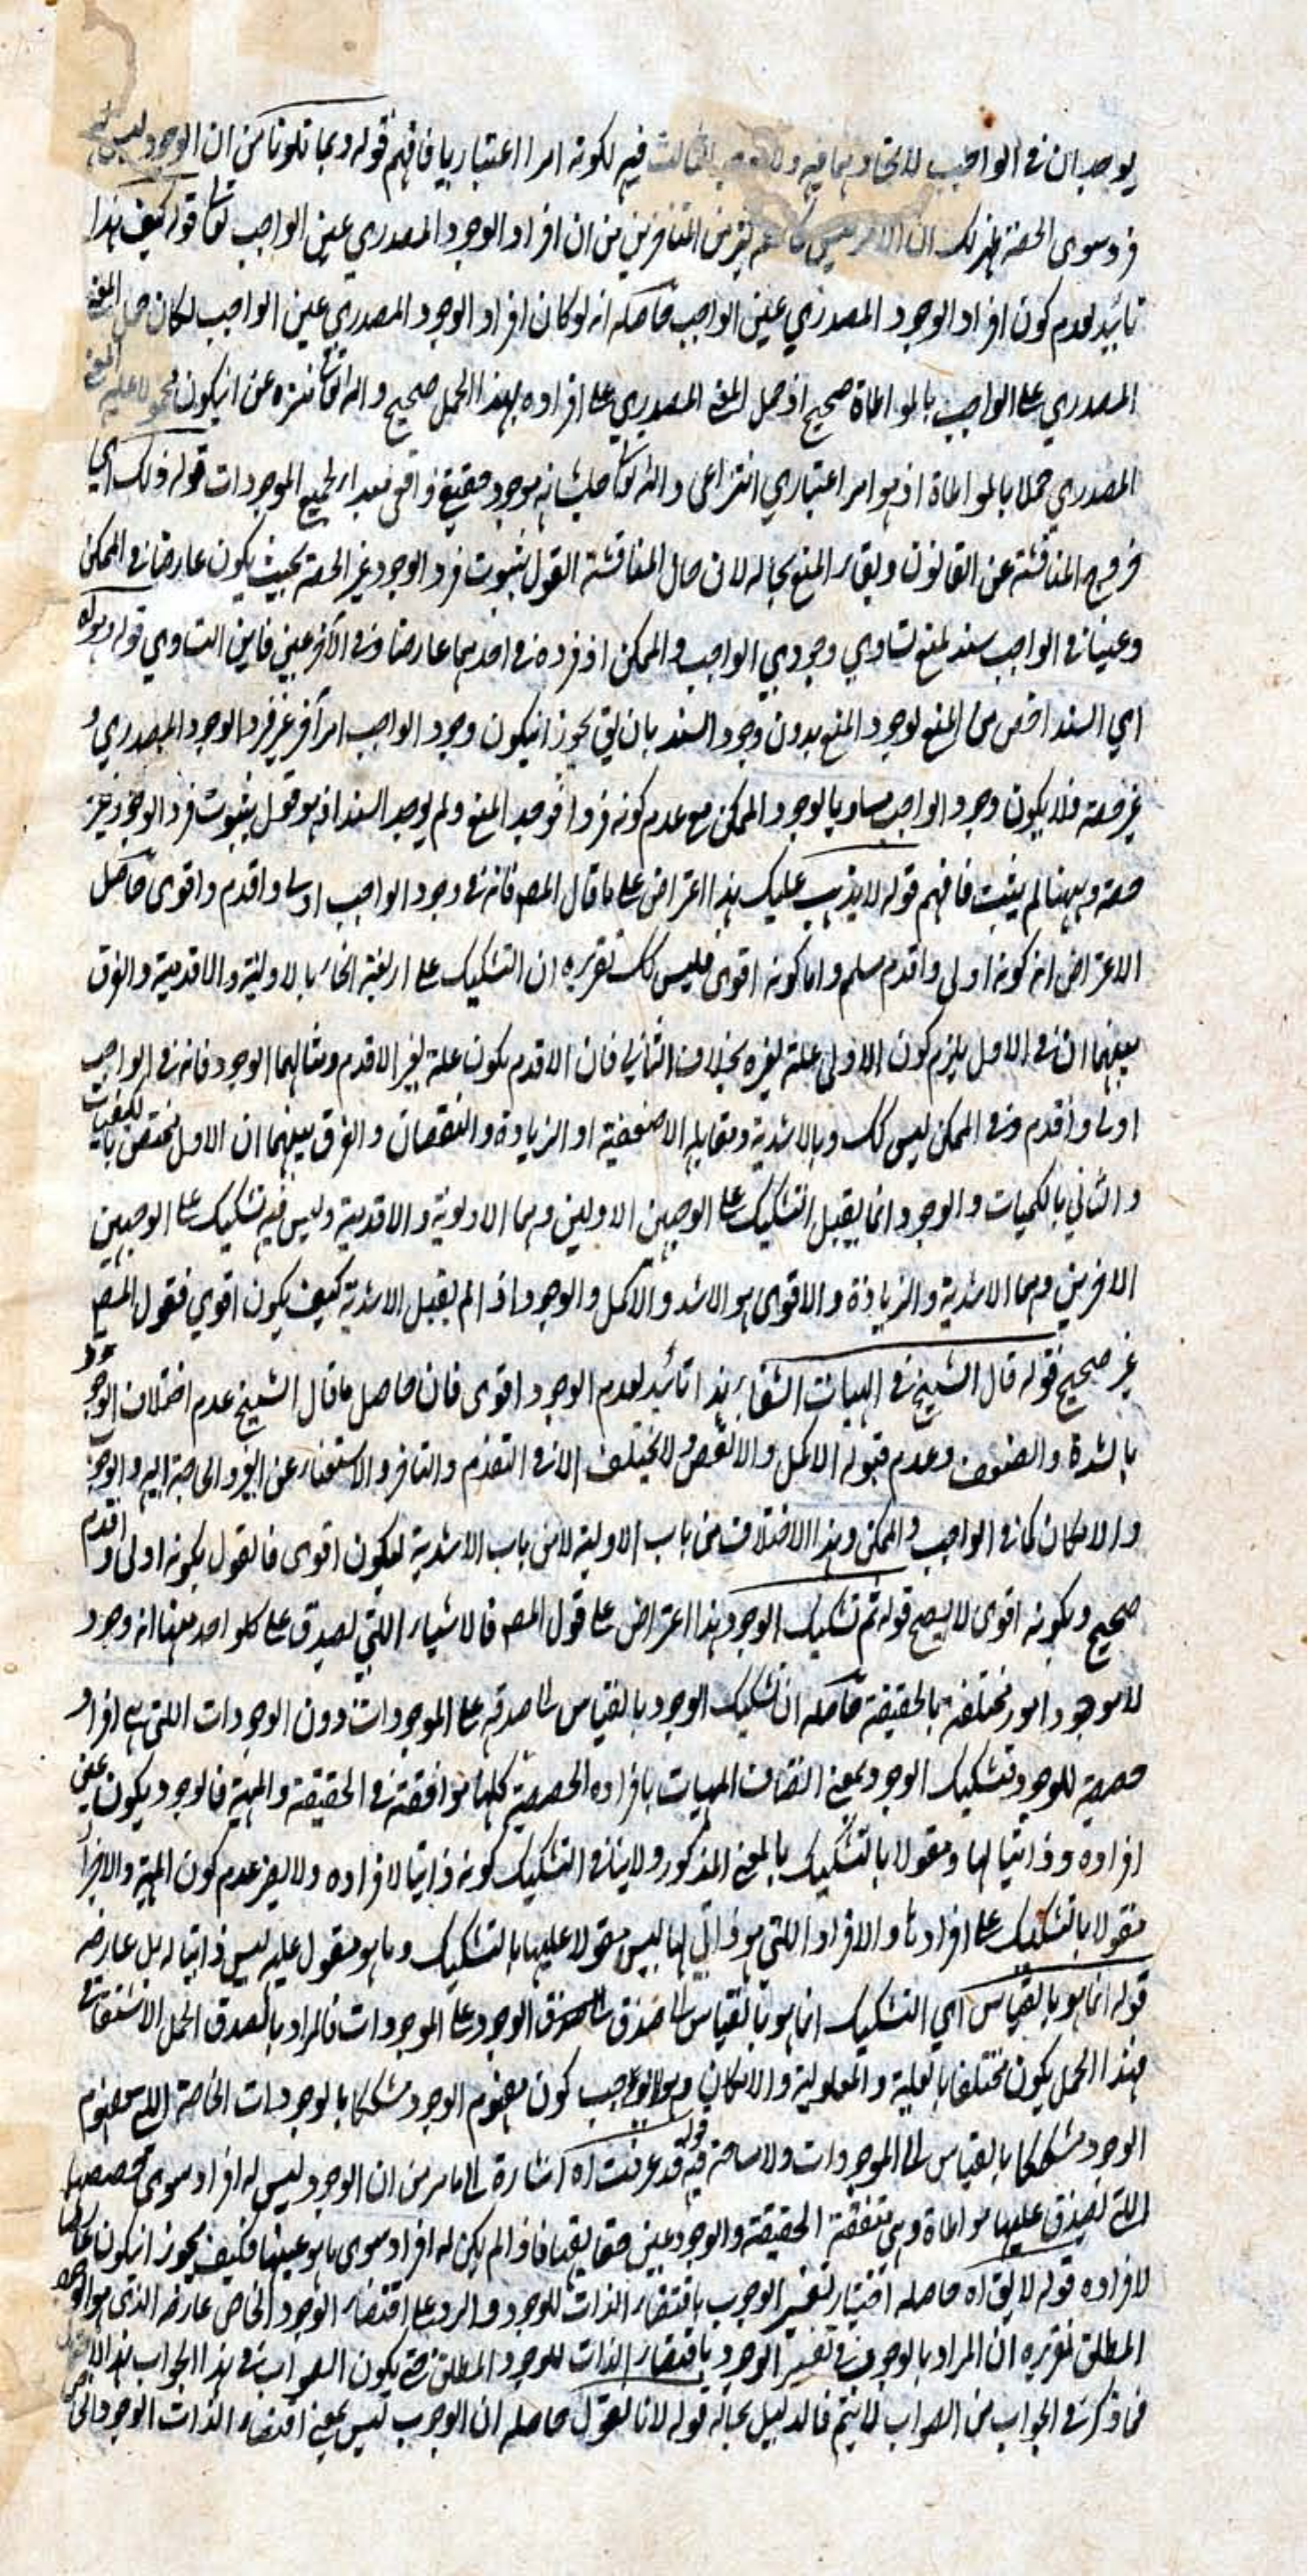 يوجدان في الواجب للاتحاد بهما فيه و الثالث فيه لكونه امرا اعتباريا فافهم قوله وبما تلونا من ان الوجود ليس له
فرد سوى الحصة ظهر لك ان الامر ليس من ان افراد الوجود المصدري عين الواجب تعا قوله كيف هذا
تائيد لعدم كون افراد الوجود المصدري عين الواجب حاصله انه لو كان افراد الوجود المصدري عين الواجب لكان حمل المعنى
المصدري على الواجب بالمواطاة صحيح اذ حمل المعنى المصدري على افراده بهذا الحمل صحيح والله تعا منزه عن ان يكون محمولا عليه المعنى
المصدري حملا بالمواطاة اذ هو امر اعتباري انتزاعي والله تعا جل شانه موجود حقيقي واقعي مبدا لجميع الموجودات قوله ذلك اي
خروج المناقشة عن القانون وبقاء المنع بحاله لان حال المناقشة القول بثبوت فرد الوجود غير الحصة بحيث يكون عارضا في الممكن
وعينا في الواجب سند لمنع تساوي وجودي الواجب والممكن اذ فرده في احدهما عارضا وفي الآخر عين فاين التساوي قوله وهو اه
اي السند اخص من المنع لوجود المنع بدون وجود السند بان يق يجوز ان يكون وجود الواجب امرآ آخر غير فرد الوجود المصدري و
غير حصة فلا يكون وجود الواجب مساويا لوجود الممكن مع عدم كونه فردا فوجد المنع ولم يوجد السند اذ هو قول بثبوت فرد الوجود غير
حصة وههنا لم يثبت فافهم قوله لا يذهب عليك هذا اعتراض على ما قال المص فانه في وجود الواجب اولى واقدم واقوى حاصل
الاعتراض انه كونه اولى واقدم مسلم واما كونه اقوى فليس كك تقريره ان التشكيك على اربعة انحاء بالاولية والاقدمية والفرق
بينهما ان في الاول يلزم كون الاولى علة لغيره بخلاف الثاني فان الاقدم يكون علة لغير الاقدم ومثالهما الوجود فانه في الواجب
اولى واقدم وفي الممكن ليس كك وبالاشدية ومقابله الاضعفية او الزيادة والنقصان والفرق بينهما ان الاول مختص بالكيفيات
والثاني بالكميات والوجود انما يقبل التشكيك على الوجهين الاولين وهما الاولوية والاقدمية وليس فيه تشكيك على الوجهين
الاخرين وهما الاشدية والزيادة والاقوى هو الاشد والاكمل والوجود اذا لم يقبل الاشدية كيف يكون اقوى فقول المص
غير صحيح قوله قال الشيخ في الهيات الشفاء هذا تائيد لعدم الوجود اقوى فان حاصل ما قال الشيخ عدم اختلاف الوجود
بالشدة والضعف وعدم قبوله الاكمل والانقص ولا يختلف الا في التقدم والتاخر والاستغناء عن الغير والحاجة اليه والوجوب
والامكان كما في الواجب والممكن وهذا الاختلاف من باب الاولية لا من باب الاشدية ليكون اقوى فالقول بكونه اولى واقدم
صحيح وبكونه اقوى لا يصح قوله ثم تشكيك الوجود هذا اعتراض على قول المص فالاشياء اللتي يصدق على كلواحد منها انه وجود
لا موجود امور مختلفة بالحقيقة حاصله ان تشكيك الوجود بالقياس الى صدقه على الموجودات دون الوجودات اللتي هي افراد
حصصية للوجود وتشكيك الوجود بمعنى اتصاف المهيات بافراده الحصصية كلها موافقة في الحقيقة والمهية فالوجود يكون عين
افراده وذاتيا لها ومقولا بالتشكيك بالمعنى المذكور ولا ينافي التشكيك كونه ذاتيا لافراده ولا يضر عدم كون المهية والاجزاء
مقولا بالتشكيك على افرادها والافراد اللتي هو ذاتي لها ليس مقولا عليها بالتشكيك وما هو مقول عليه ليس ذاتيا له بل عارضه
قوله انما هو بالقياس اي التشكيك انما هو بالقياس الى صدق الوجود على الموجودات فالمراد بالصدق الحمل الاشتقاقي
فهذا الحمل يكون مختلفا بالعلية والمعلولية والامكان كون مفهوم الوجود مشككا بالوجودات الخاصة اللتي مفهوم
الوجود مشككا بالقياس الى الموجودات ولا مسامحة فيه قوله قد عرفت اه اشارة الى ما مر من ان الوجود ليس له افراد سوى حصصها
اللتي تصدق عليها مواطاة وهي متفقة الحقيقة والوجود عين حقايقها فاذا لم يكن له افراد سوى ما هو عينها فكيف يجوز ان يكون عارضا
لافراده قوله لا يق اه حاصله اختيار تفسير الوجوب باقتضاء الذات للوجود والرد على اقتضاء الوجود الخاص عارضه الذي هو الوجود
المطلق تقريره ان المراد بالوجود في تفسير الوجود باقتضاء الذات للوجود المطلق حتى يكون الصواب في هذا الجواب
فما ذكر في الجواب من الصواب لا يتم فالدليل بحاله قوله لانا نقول حاصله ان الوجوب ليس بمعنى اقتضاء الذات الوجود